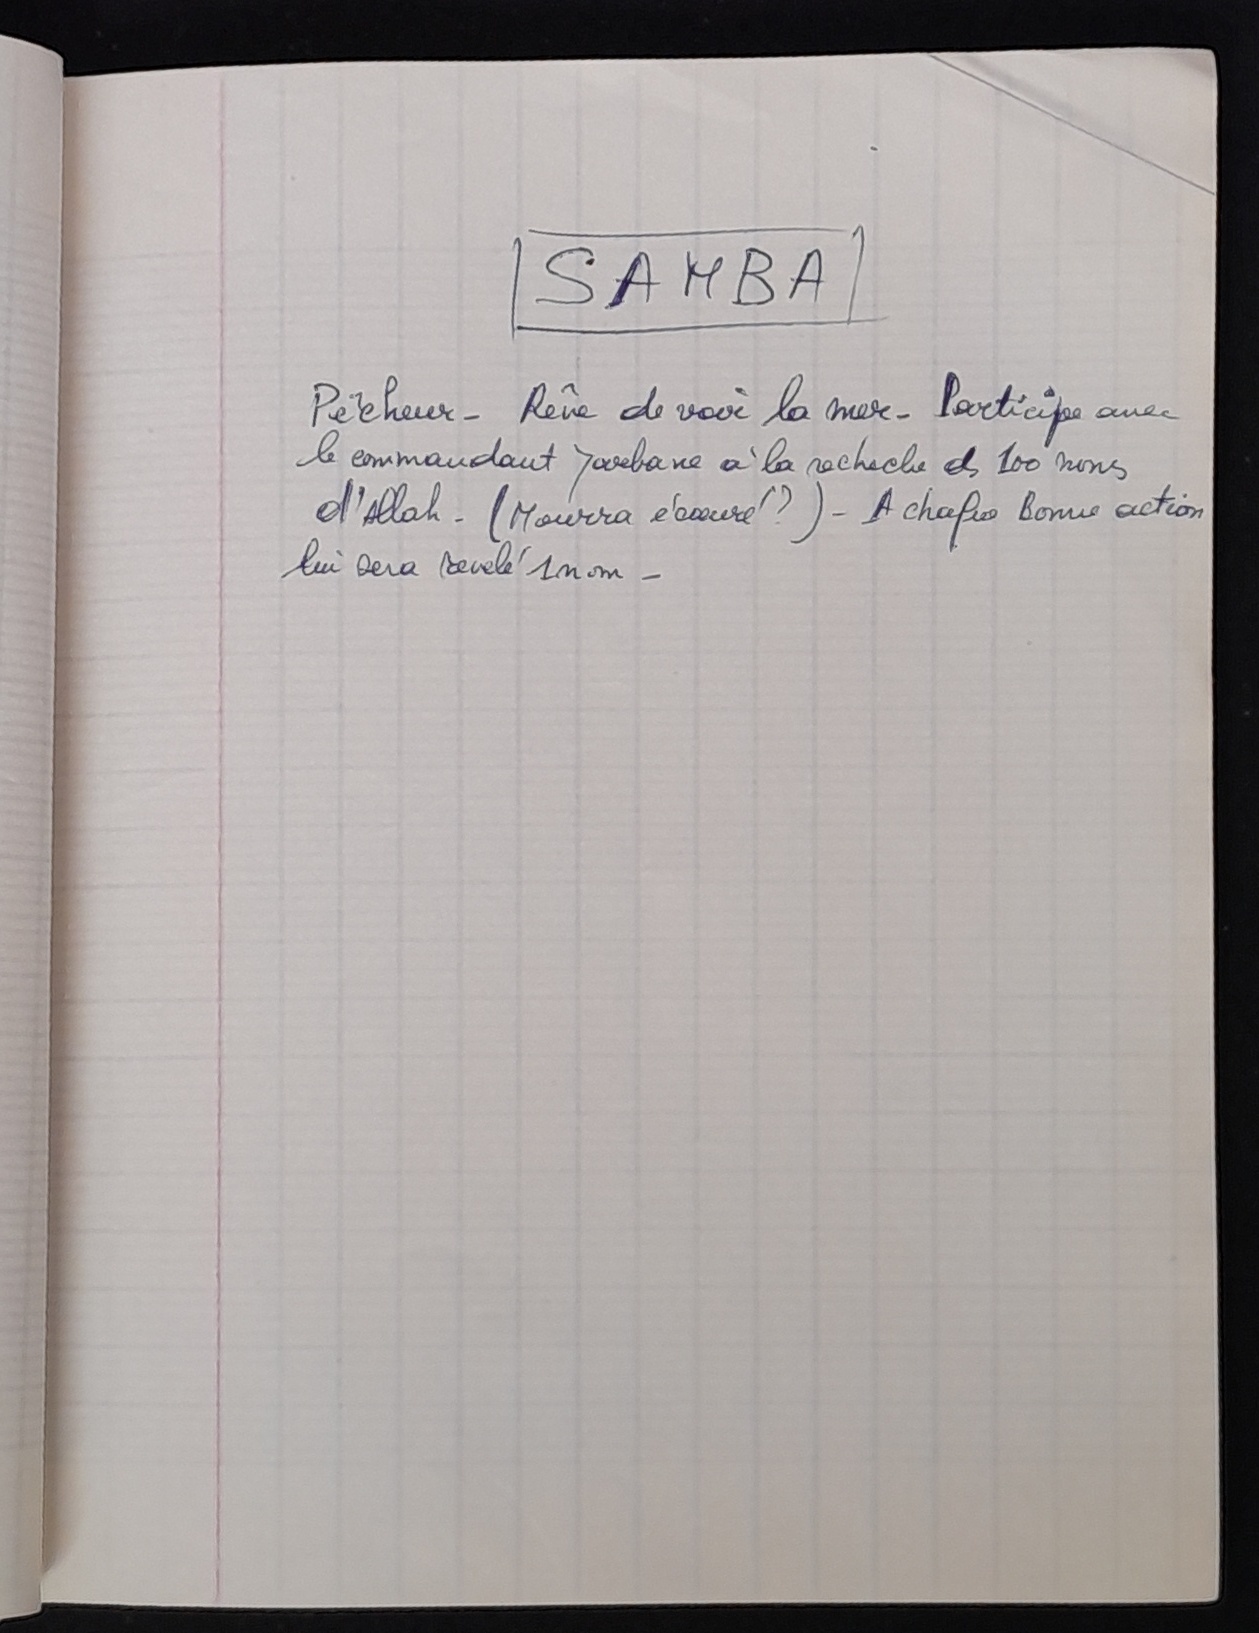 SAMBA
Pêcheur - Rêve de voir la mer - Participe avec
le commandant à la recherche des 100 noms
d'Allah - (Mourra écœuré ?) - A chaque Bonne action
lui sera revelé 1 nom -